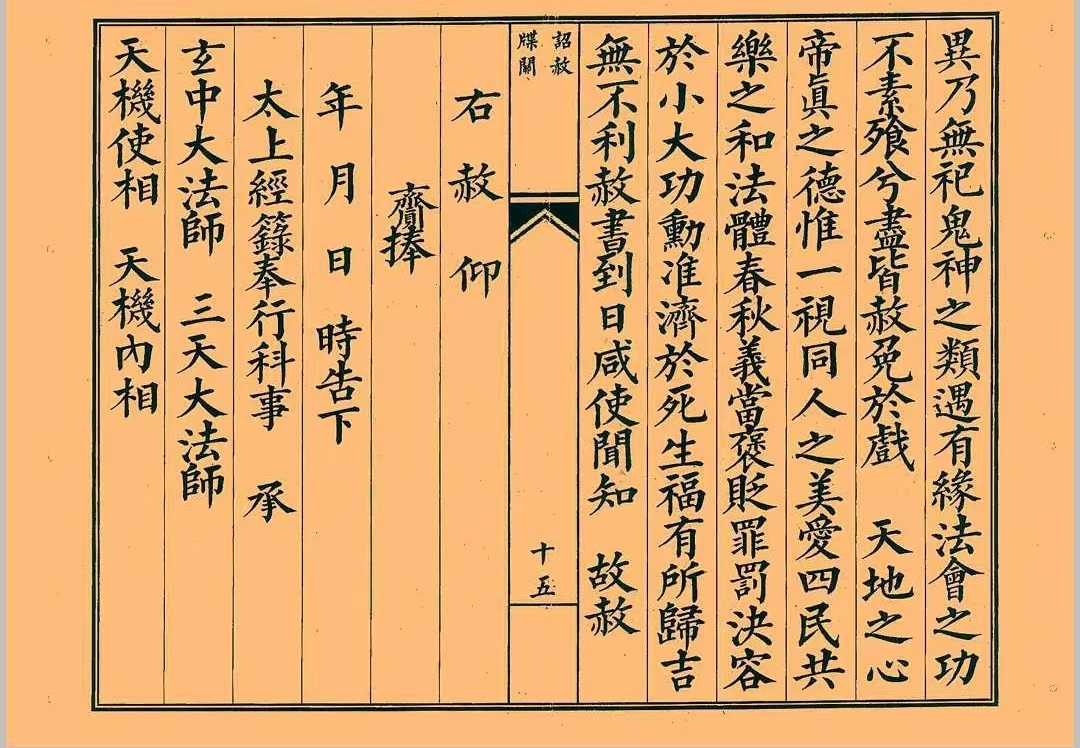 異乃無祀鬼神之類遇有緣法會之功
不素飱兮盡皆赦免於戲　天地之心
帝眞之德惟一視同人之美愛四民共
樂之和法體春秋義當褒貶罪罰決容
於小大功勳准濟於死生福有所歸吉
無不利赦書到日咸使聞知　故赦
詔赦
牒關
十五
右赦仰
齎捧
年月日時告下
太上經籙奉行科事　承
玄中大法師　三天大法師
天機使相　天機內相